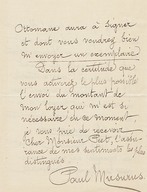 Ottomane aura à signer
et dont vous voudrez bien
m'envoyer un exemplaire.
Dans la certitude que
vous activerez le plus possible
l'envoi du montant de
mon loyer qui m'est si
nécessaire en ce moment,
je vous prie de recevoir,
Cher Monsieur Pект, l'assu-
rance de mes sentiments les plus
distingués
Paul Musurus